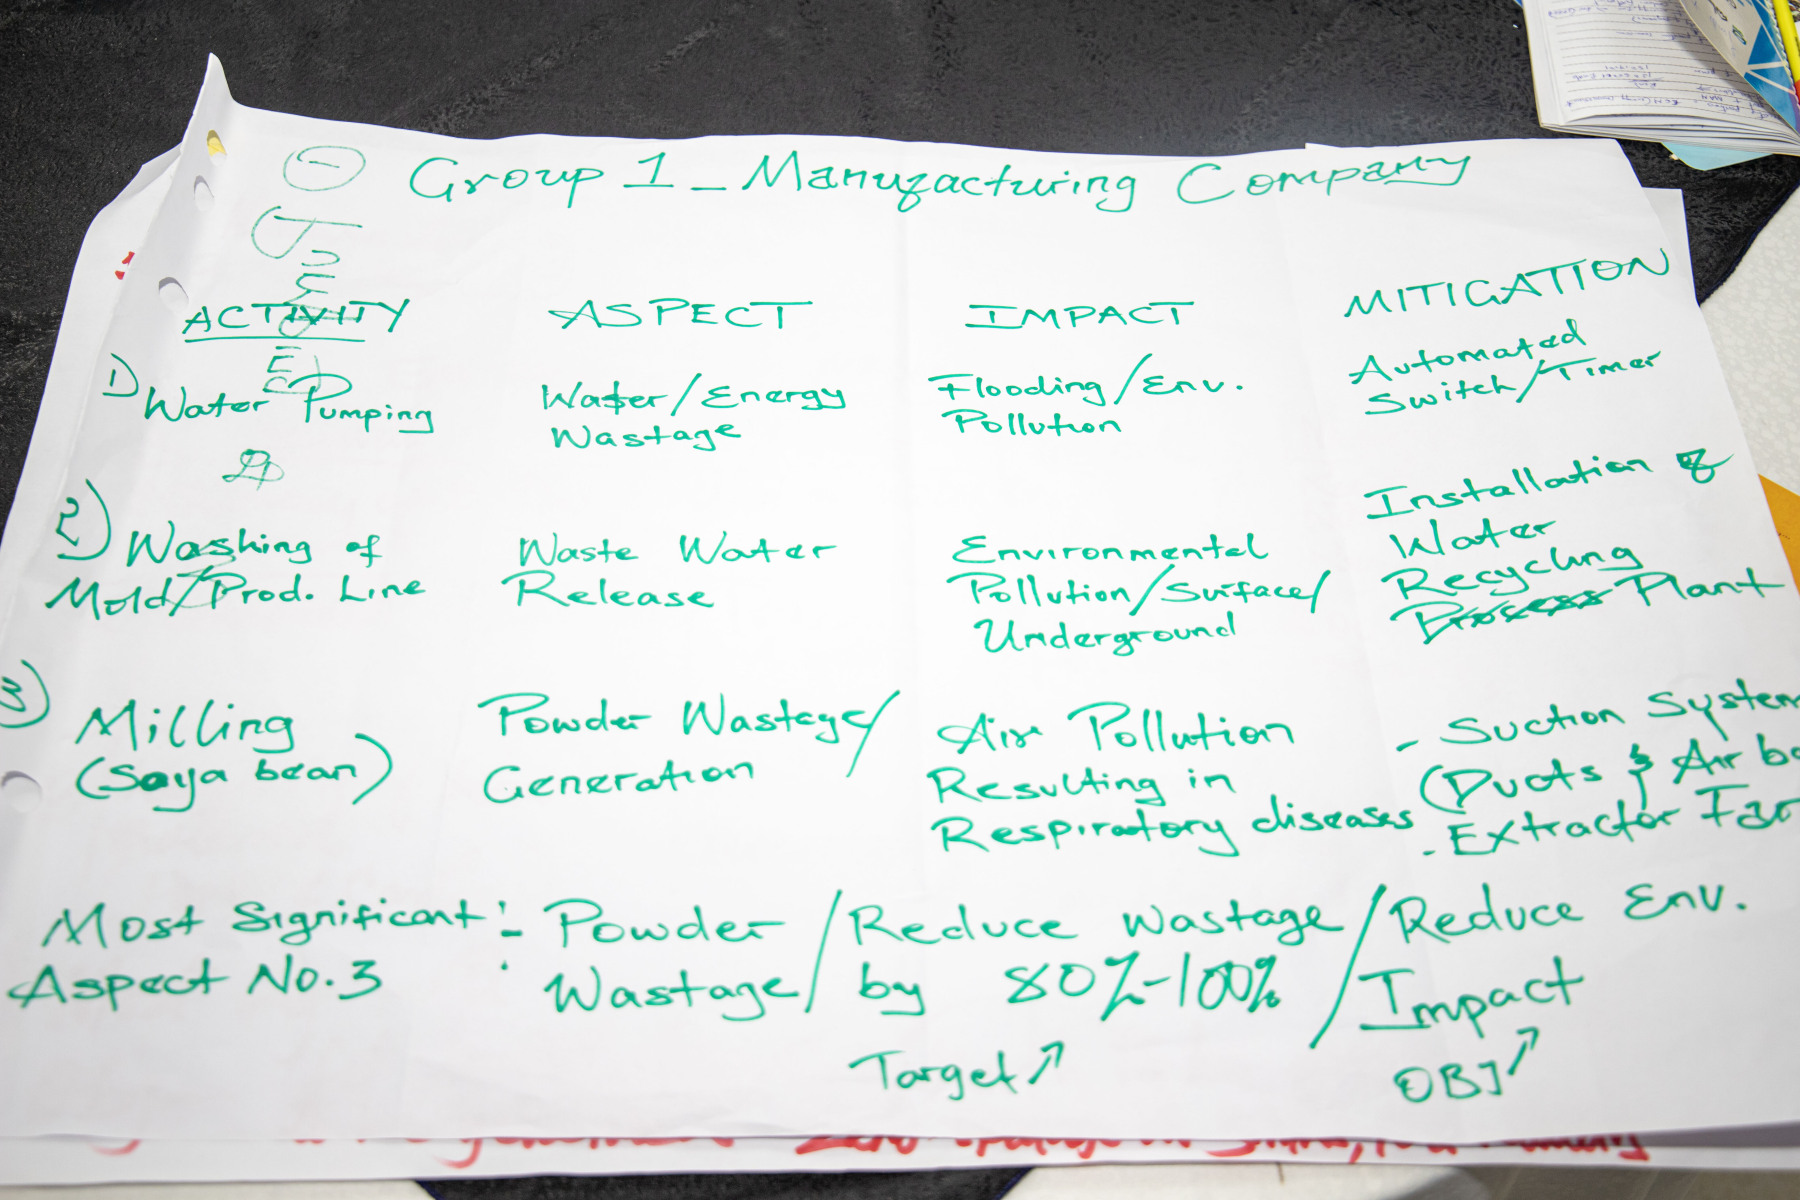 Group 1 - Manufacturing Company
ACTIVITY ASPECT IMPACT MITIGATION
1) Water Pumping
Water/Energy
Wastage
Flooding/Env.
Pollution
Automated
Switch/Timer
2) Washing of
Mold/Prod. Line
Waste Water
Release
Environmental
Pollution/Surface/
Underground
Installation of
Water
Recycling
Process Plant
3) Milling
(Soya bean)
Powder Wastage/
Generation
Air Pollution
Resulting in
Respiratory diseases
- Suction System
(Ducts & Air
- Extractor Fan
Most Significant :- Powder / Reduce Wastage / Reduce Env.
Aspect No. 3 : Wastage / by 80%-100% / Impact
Target ↗ OBJ ↗